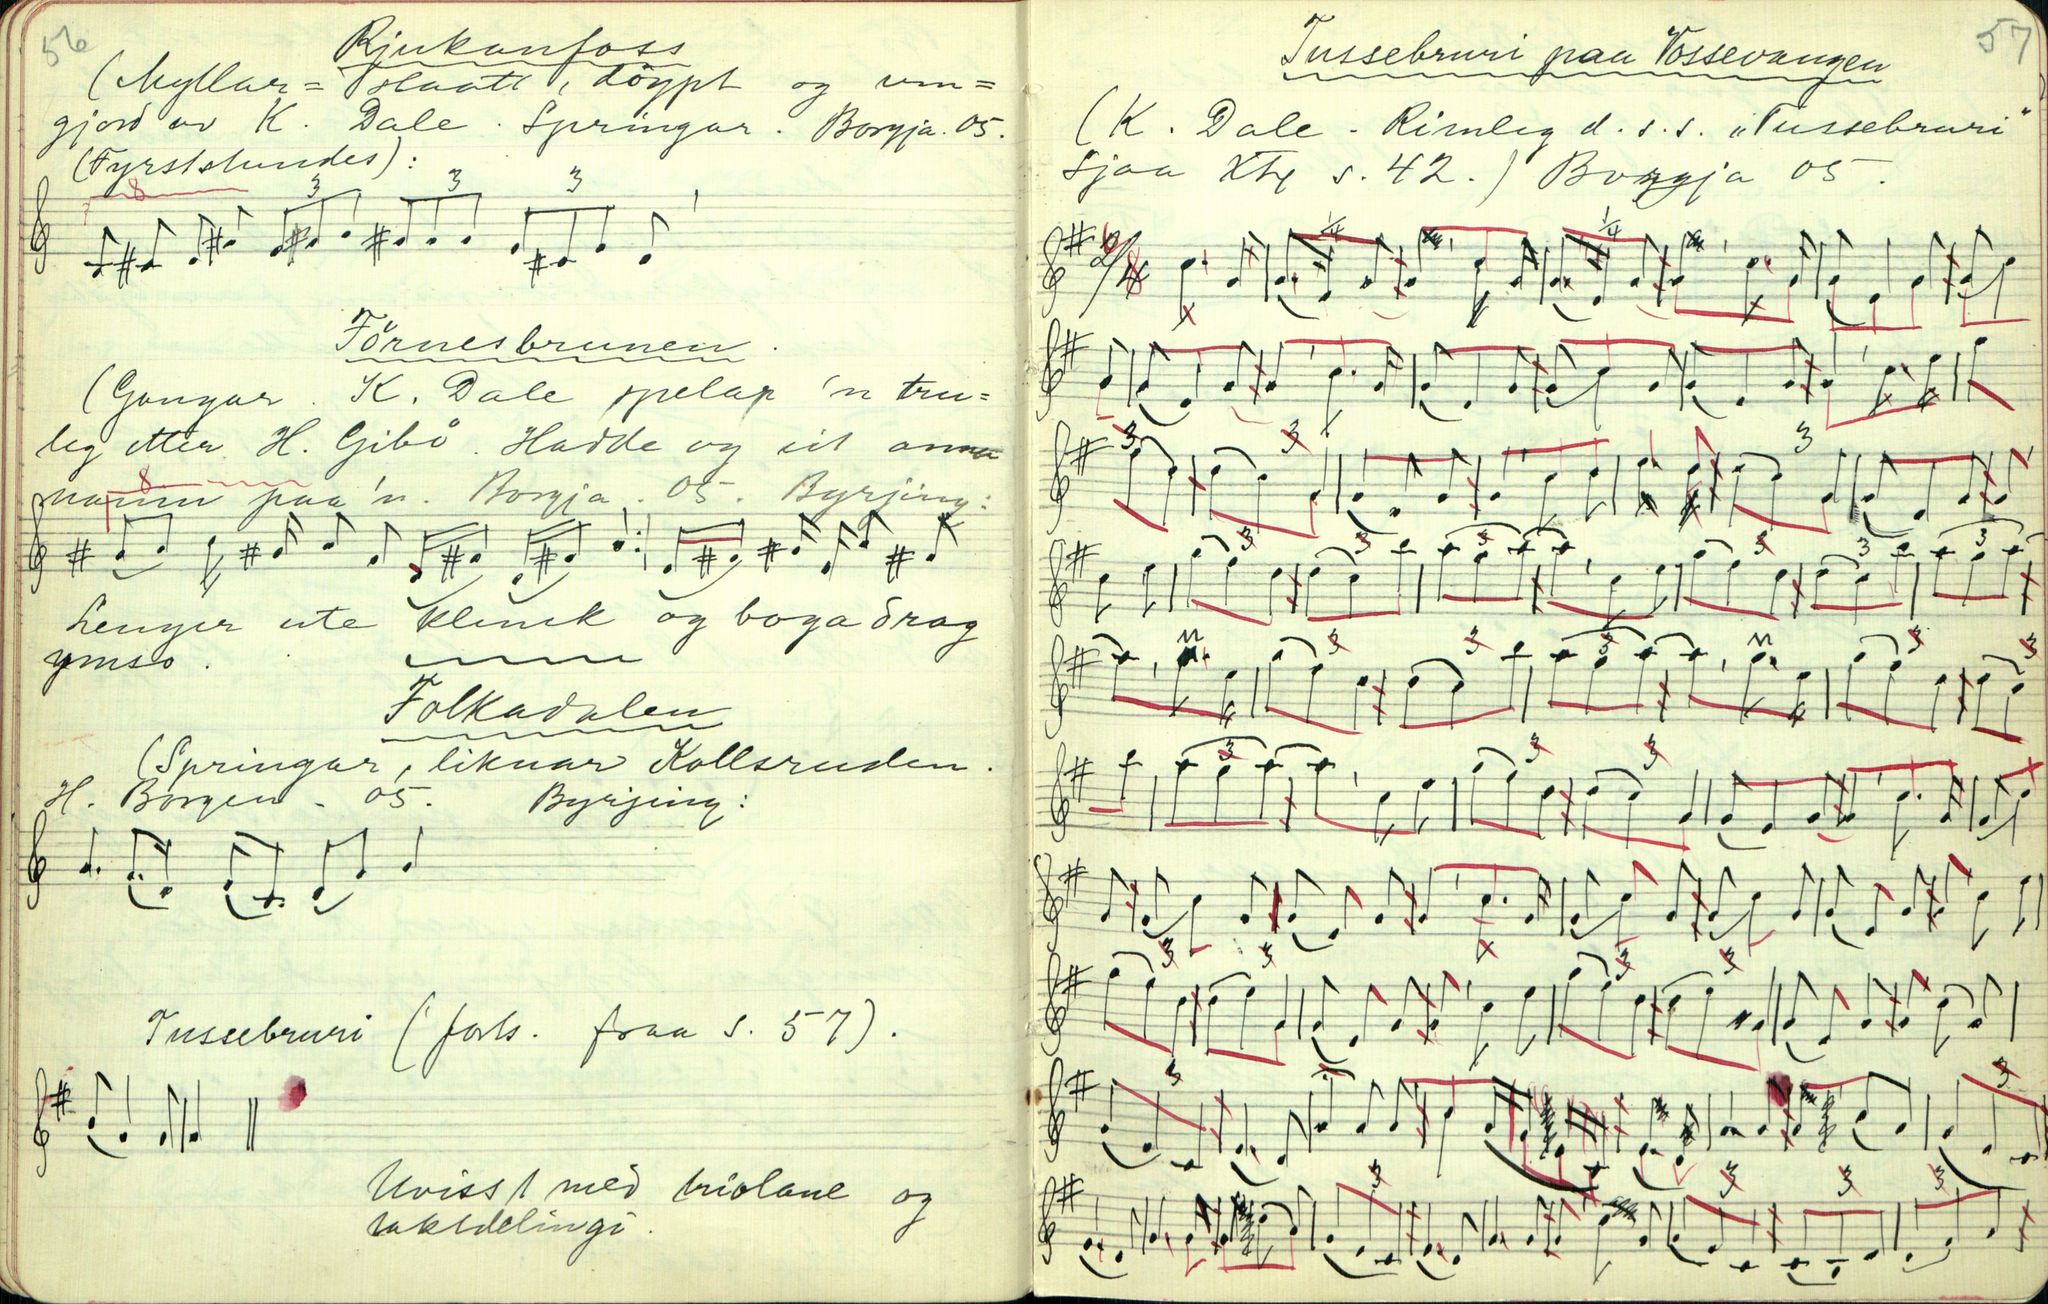 56
Rjukanfoss
(Myllar= Slaatt, döypt og um=
gjord av K. Dale. Springar. Borgja. 05.
(Fyrststundes):
8
3 3 3
Förnesbrunen.
(Gangar. K. Dale spelar 'n tru=
leg etter H. Gibö. Hadde og eit anna
namn paa 'n. Borgja. 05. Byrjing:
8
Lenger ute klunk og bogadrag
ymso.
Folkadalen
(Springar, liknar Kollsruden.
H. Borgen. 05. Byrjing:
Tussebruri (forts. fraa s. 57).
Uvisst med triolane og
taktdelingi.
57
Tussebruri paa Vossevangen
(K. Dale. Rimleg d. s. s. "Tussebruri"
Sjaa s. 42.) Borgja 05.
1/4 1/4
3 3 3
3 3 3 3 3 3
3 3 3 3 3
3 3 3
3 3 3 3
3 3
3 3 3